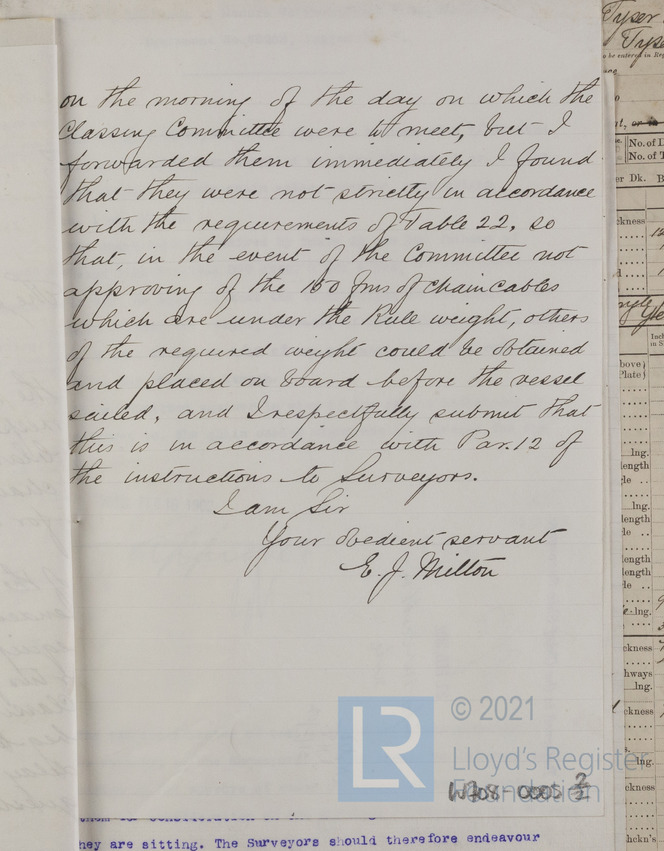 on the morning of the day on which the
Classing Committee were to meet, but I
forwarded them immediately I found
that they were not strictly in accordance
with the requirements of Table 22, so
that, in the event of the Committee not
approving of the 150 fms of chain cables
which are under the Rule weight, others
of the required weight could be obtained
and placed on board before the vessel
sailed, and I respectfully submit that
this is in accordance with Par. 12 of
the instructions to Surveyors.
I am Sir
Your obedient servant
E. J. Milton
© 2021
LR
Lloyd's Register
Foundation
W708-0005 2/2
hey are sitting. The Surveyors should therefore endeavour
Tyser
Tyse
o be entered in Reg
No. of D
No. of T
er Dk. B
ckness
bove
Plate)
lng.
length
lng.
length
length
length
lng.
ckness
hways
lng.
ckness
lng.
ckness
hckn's